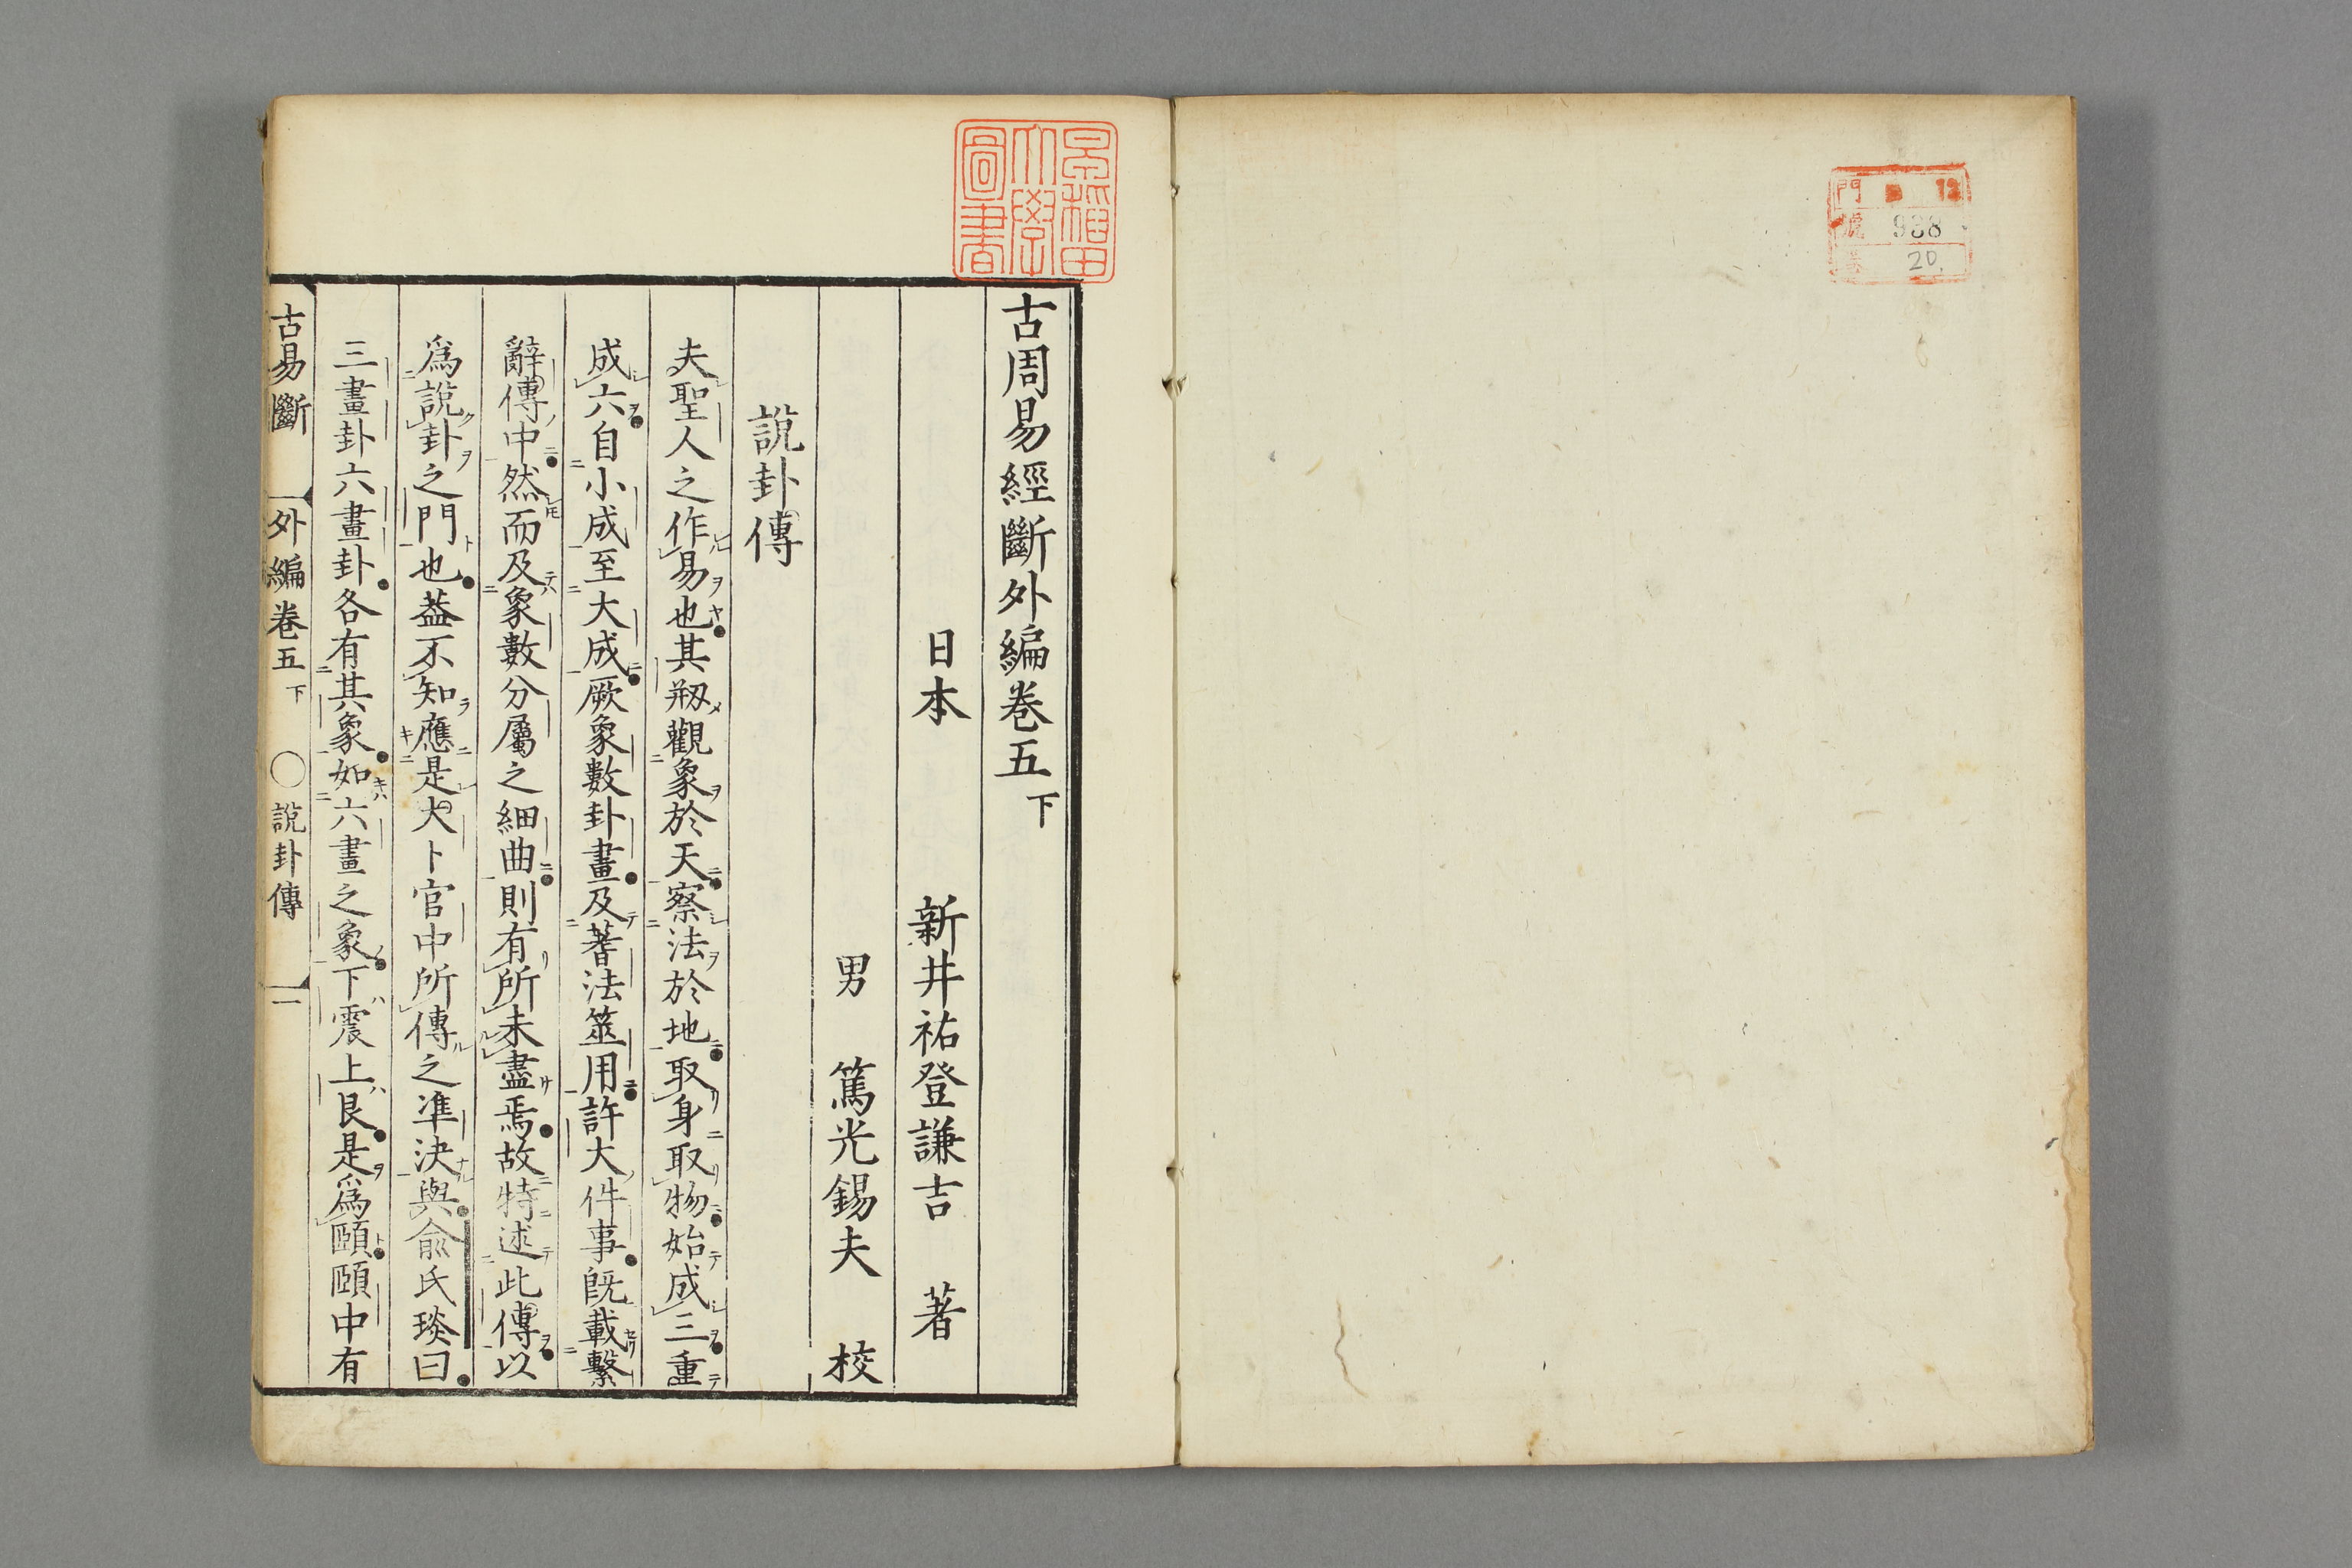 門 12
號 938
20
早稲田
大學
圖書
古周易經斷外編卷五 下
日本 新井祐登謙吉 著
男 篤光錫夫 校
說卦傳
夫聖人之作易也其剏觀象於天察法於地取身取物始成三重
成六自小成至大成厥象數卦畫及蓍法筮用許大件事旣載繫
辭傳中然而及象數分屬之細曲則有所未盡焉故特述此傳以
爲說卦之門也葢不知應是大卜官中所傳之準決與兪氏琰曰
三畫卦六畫卦各有其象如六畫之象下震上艮是爲頤頤中有
古易斷 外編卷五 下 ○說卦傳 一